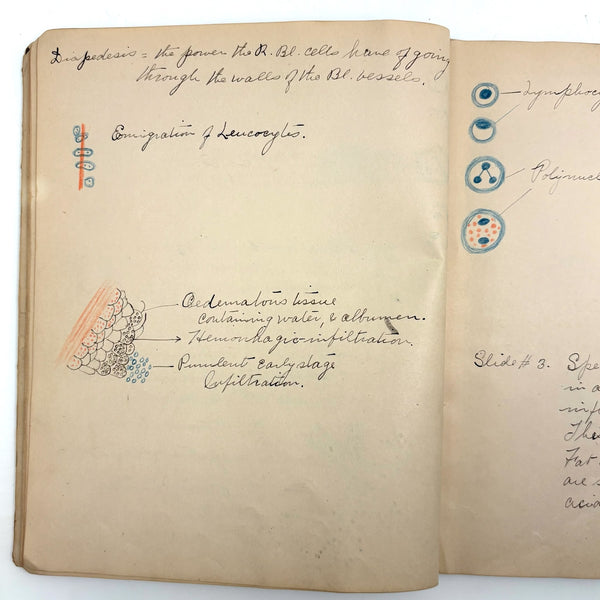 Diapedesis = the power the R. Bl. cells have of going
through the walls of the Bl. vessels.
Emigration of Leucocytes.
Oedematous tissue
containing water, & albumen.
Hemorrhagic infiltration.
Purulent early stage
Infiltration.
Lymphocy
Polynucl
Slide # 3. Spe
in a
inf
The
Fat
are s
acid